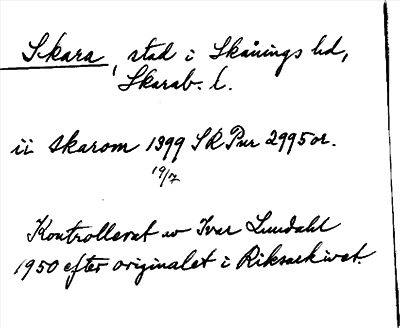 Skara, stad i Skånings hd,
Skarab. l.
ii skarom 1399 SRPur 2995 or.
19/7
Kontrollerat av Ivar Lundahl
1950 efter originalet i Riksarkivet.